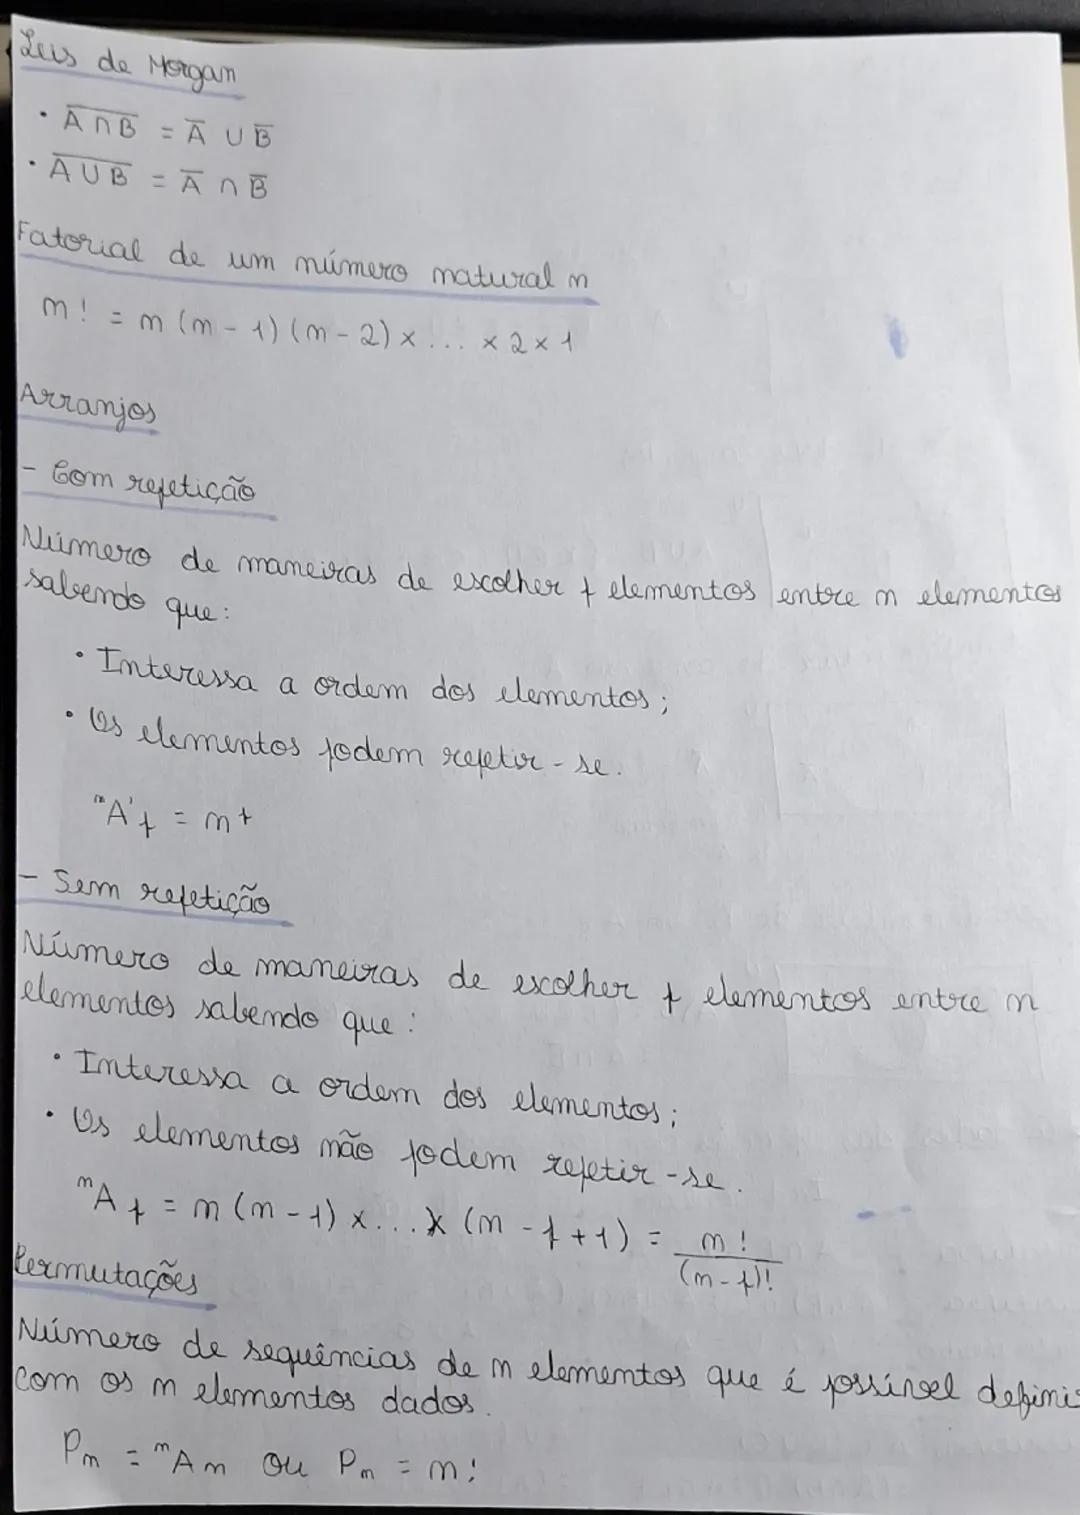 Leis de Morgan
• A̅∩̅B̅ = A̅ ∪ B̅
• A̅∪̅B̅ = A̅ ∩ B̅
Fatorial de um número natural n
n! = n (n - 1) (n - 2) × ... × 2 × 1
Arranjos
- Com repetição
Número de maneiras de escolher p elementos entre n elementos
sabendo que:
• Interessa a ordem dos elementos;
• Os elementos podem repetir-se.
ⁿA'p = nᵖ
- Sem repetição
Número de maneiras de escolher p elementos entre n
elementos sabendo que:
• Interessa a ordem dos elementos;
• Os elementos não podem repetir-se.
ⁿAp = n (n - 1) × ... × (n - p + 1) = n! / (n - p)!
Permutações
Número de sequências de n elementos que é possível definir
com os n elementos dados.
Pn = ⁿAn ou Pn = n!